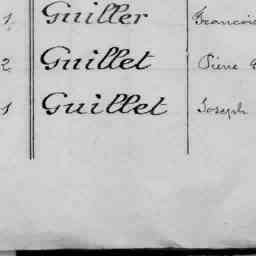 1 Guiller Francois
2 Guillet Piere
1 Guillet Joseph